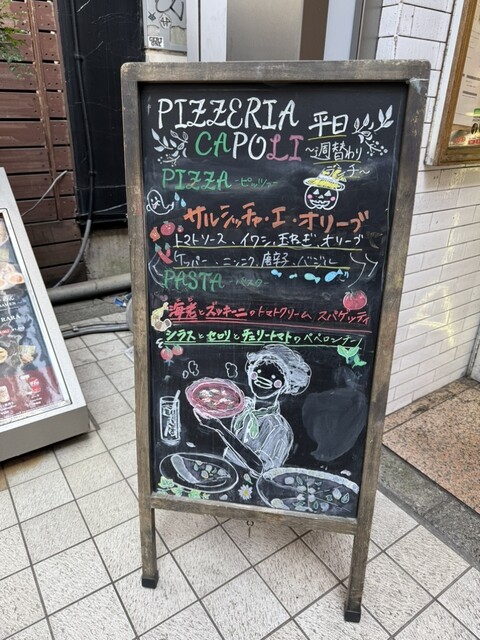 PIZZERIA
CAPOLI
平日
~週替わり
ランチ~
PIZZA -ピッツァ-
サルシッチャ・エ・オリーブ
トマトソース、イワシ、玉ねぎ、オリーブ
ケッパー、ニンニク、唐辛子、バジル
PASTA -パスタ-
海老とズッキーニのトマトクリーム スパゲッティ
シラスとセロリとチェリートマトのペペロンチーノ